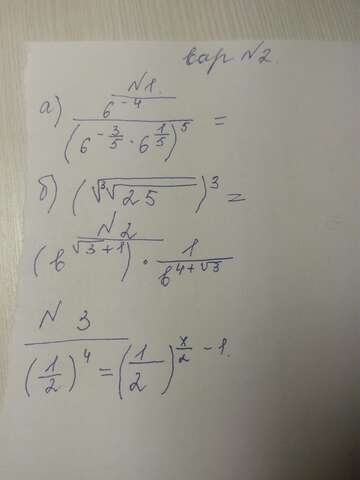 вар №2.
№1.
а) \frac{6^{-4}}{(6^{-\frac{3}{5}} \cdot 6^{\frac{1}{5}})^5} =
б) (\sqrt[3]{\sqrt{25}})^3 =
№2
(b^{\sqrt{3}+1}) \cdot \frac{1}{b^{4+\sqrt{3}}}
№3
(\frac{1}{2})^4 = (\frac{1}{2})^{\frac{x}{2} - 1}.